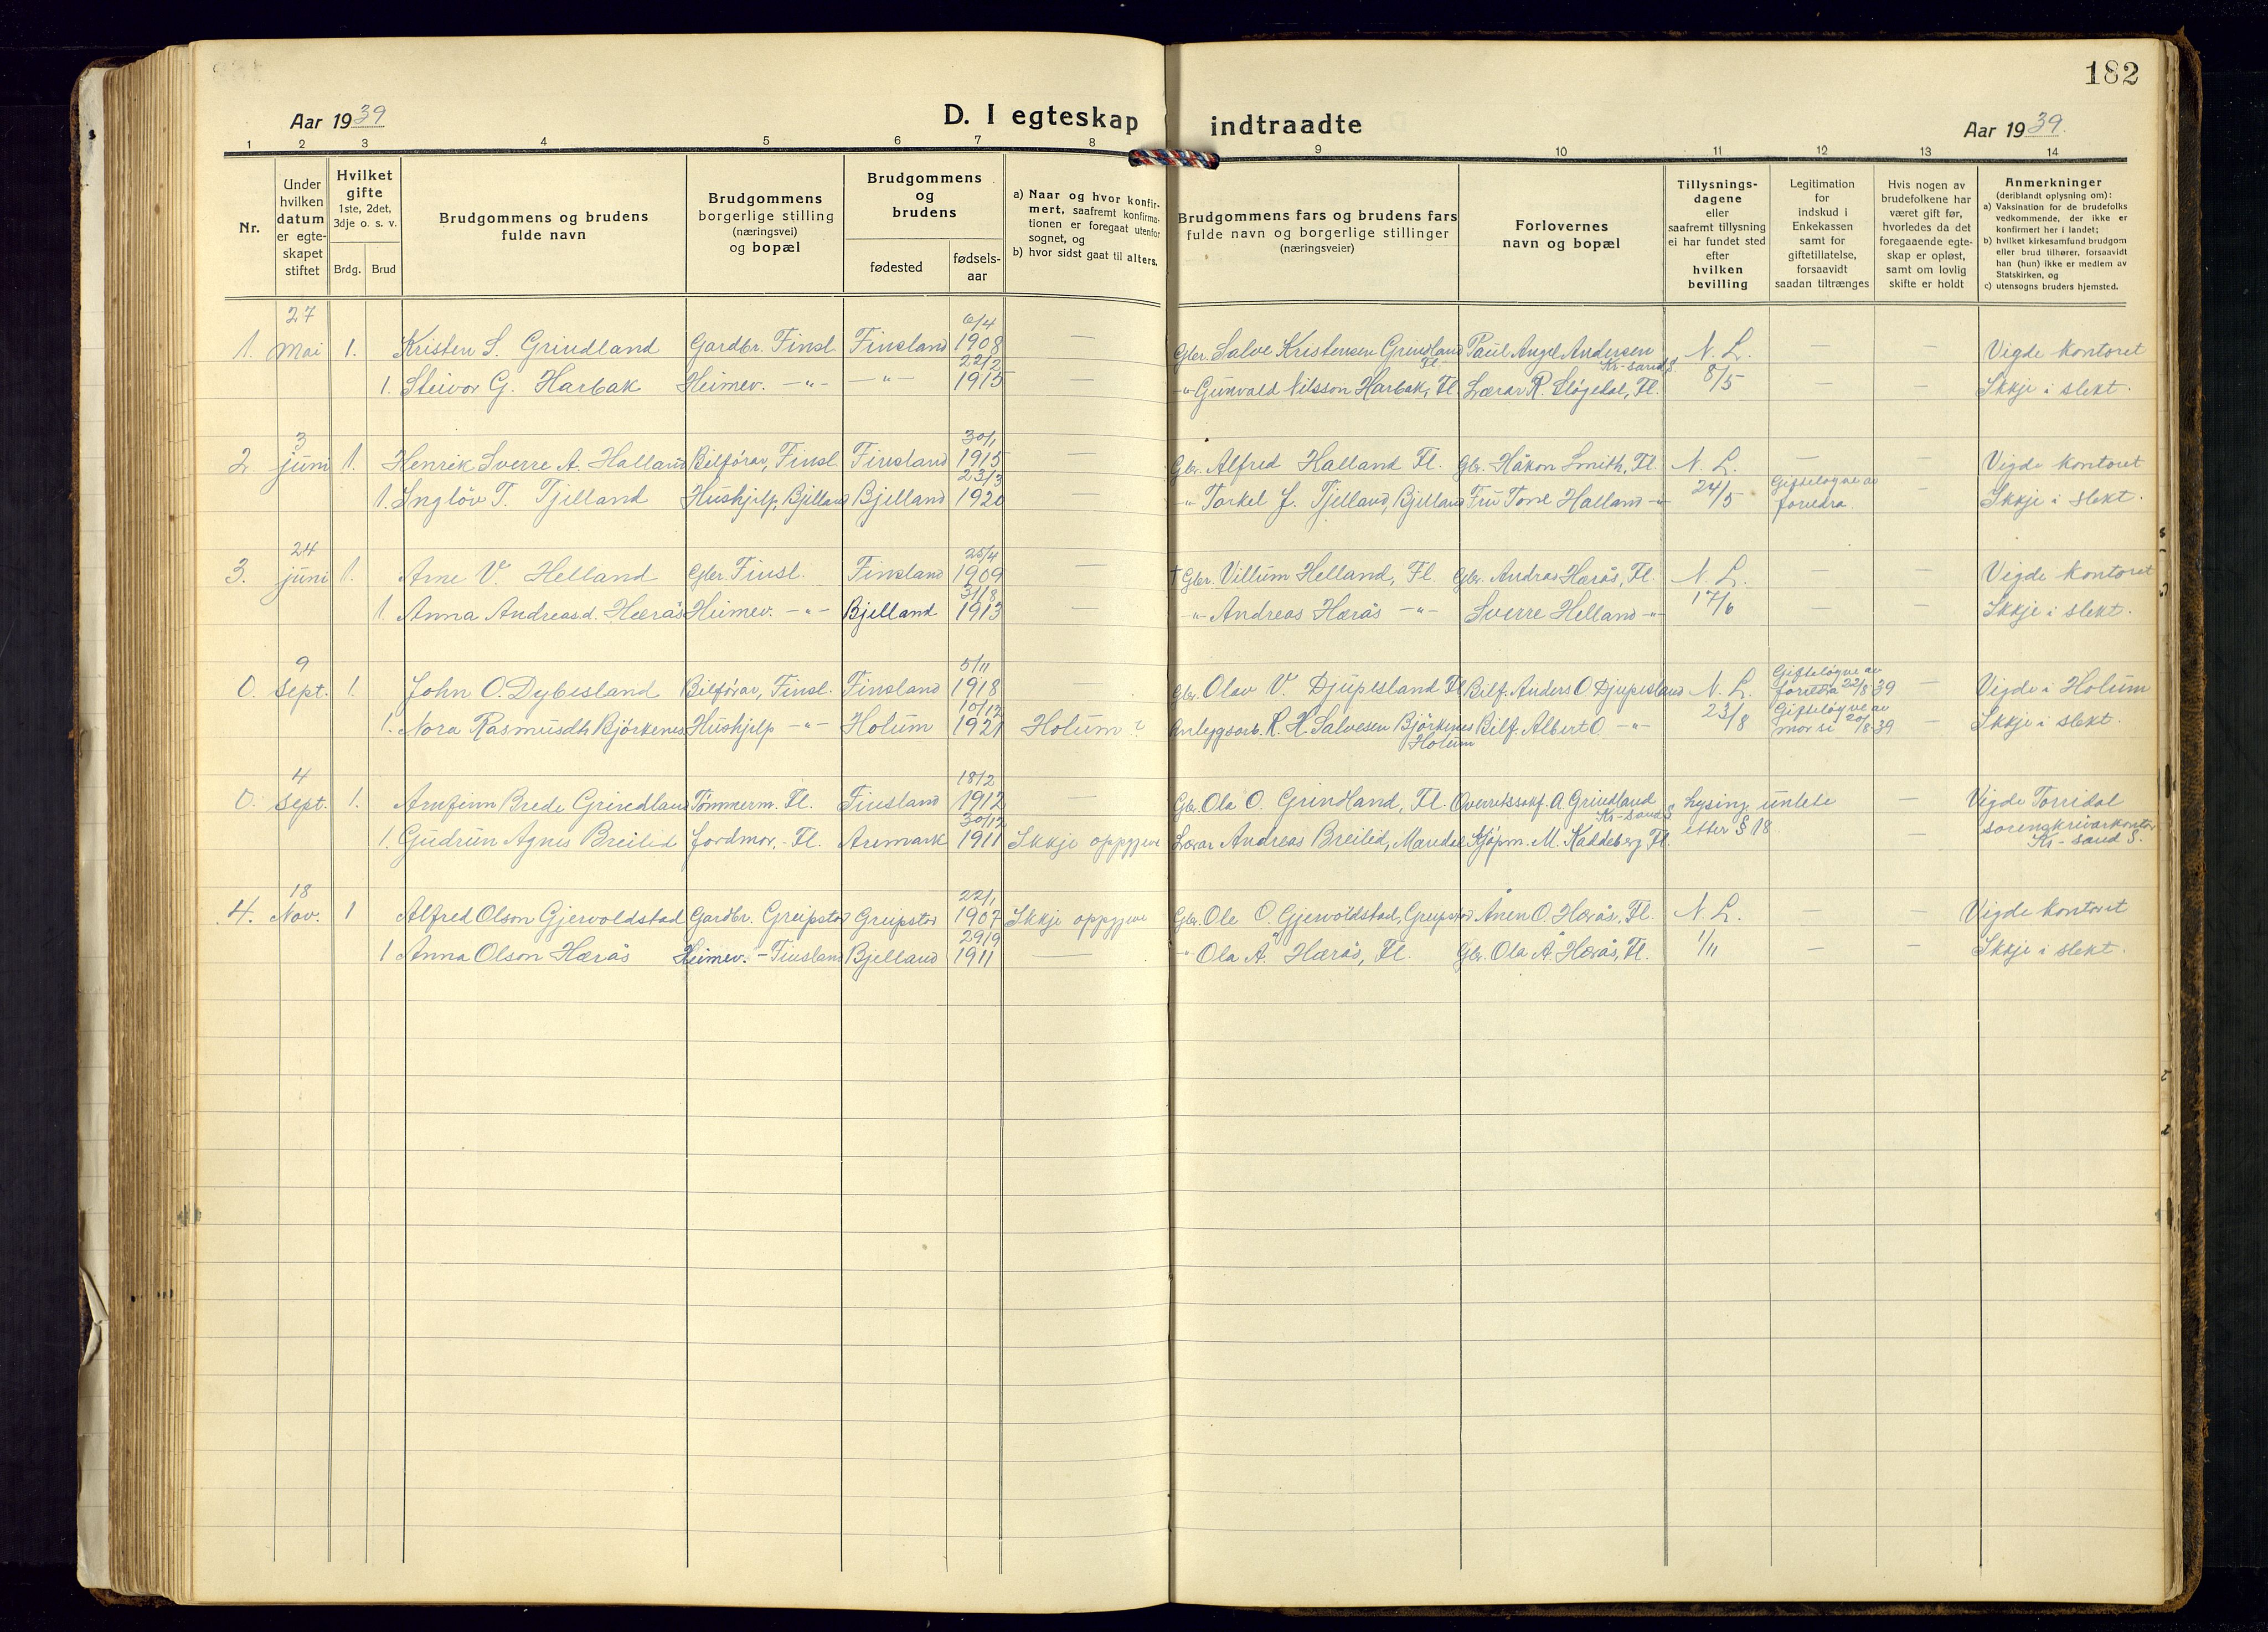 182
Aar 1939
D. I egteskap indtraadte
Aar 1939.
1 2 3 4 5 6 7 8 9 10 11 12 13 14
Nr.
Under hvilken datum er egteskapet stiftet
Hvilket gifte 1ste, 2det, 3dje o. s. v.
Brdg. Brud
Brudgommens og brudens fulde navn
Brudgommens borgerlige stilling (næringsvei) og bopæl
Brudgommens og brudens
fødested
fødsels-aar
a) Naar og hvor konfirmert, saafremt konfirmationen er foregaat utenfor sognet, og
b) hvor sidst gaat til alters.
Brudgommens fars og brudens fars fulde navn og borgerlige stillinger (næringsveier)
Forlovernes navn og bopæl
Tillysnings-dagene eller saafremt tillysning ei har fundet sted efter hvilken bevilling
Legitimation for indskud i Enkekassen samt for giftetillatelse, forsaavidt saadan tiltrænges
Hvis nogen av brudefolkene har været gift før, hvorledes da det foregaaende egteskap er opløst, samt om lovlig skifte er holdt
Anmerkninger (deriblandt oplysning om):
a) Vaksination for de brudefolks vedkommende, der ikke er konfirmert her i landet;
b) hvilket kirkesamfund brudgom eller brud tilhører, forsaavidt han (hun) ikke er medlem av Statskirken, og
c) utensogns bruders hjemsted.
1. 27 Mai 1. Kristen S. Grindland Gardbr. Finsl. Finsland 6/4 1908 — Gbr. Salve Kristensen Grindland Fl. Paul Angel Andersen Kr-sand S. N. L. — — Vigde kontoret
1. Steivor G. Harbak Heimev. —"— —"— 22/2 1915 — —"— Gunvald Nilsson Harbak, Fl. Lærar R. Sløgedal, Fl. 8/5 — — Ikkje i slekt.
2. 3 juni 1. Henrik Sverre A. Halland Bilförar, Finsl. Finsland 30/1 1915 — Gbr. Alfred Halland Fl. Gbr. Håkon Smith, Fl. N. L. — — Vigde kontoret
1. Inglöv T. Tjelland Hushjelp, Bjelland Bjelland 23/3 1920 —"— Torkel J. Tjelland, Bjelland Fru Tone Halland —"— 24/5 Gifteløyve av foreldra. — Ikkje i slekt.
3. 24 juni 1. Arne V. Helland Gbr. Finsl. Finsland 25/4 1909 — † Gbr. Villum Helland, Fl. Gbr. Andras Hærås, Fl. N. L. — — Vigde kontoret
1. Anna Andreasd. Hærås Heimev. —"— Bjelland 31/8 1913 — —"— Andreas Hærås —"— Sverre Helland —"— 17/6 — — Ikkje i slekt.
0. 9 Sept. 1. John O. Dybesland Bilförar, Finsl. Finsland 5/11 1918 — Gbr. Olav V. Djupesland Fl. Bilf. Anders O Djupesland N. L. Gifteløyve av foreldra 22/8 39 — Vigde i Holum
1. Nora Rasmusdtr Björkenes Hushjelp —"— Holum 10/12 1921 Holum? Anleggsarb. R. K. Salvesen Björkenes Holum Bilf. Albert O. —"— 23/8 Gifteløyve av mor si 20/8-39 — Ikkje i slekt.
0. 4 Sept. 1. Arnfinn Brede Grindland Tömmerm. Fl. Finsland 18/2 1912 — Gbr. Ola O. Grindland, Fl. Overrettssakf. A. Grindland Kr-sand S. Lysing unlete — Vigde Torridal
1. Gudrun Agnes Breilid Jordmor, Fl. Aremark 30/12 1911 Ikkje oppgjeve Lærar Andreas Breilid, Mandal Kjøpm. M. Kaddeberg Fl. etter § 18 — sorenskrivarkontor Kr-sand S.
4. 18 Nov. 1 Alfred Olson Gjervoldstad Gardbr. Greipstad Greipstad 22/1 1907 Ikkje oppgjeve Gbr. Ole O. Gjervoldstad, Greipstad Ånen O. Hærås, Fl. N. L. — — Vigde kontoret
1 Anna Olson Hærås Heimev. - Finsland Bjelland 29/9 1911 — —"— Ola Å. Hærås, Fl. Gbr. Ola Å. Hærås, Fl. 1/11 — — Ikkje i slekt.